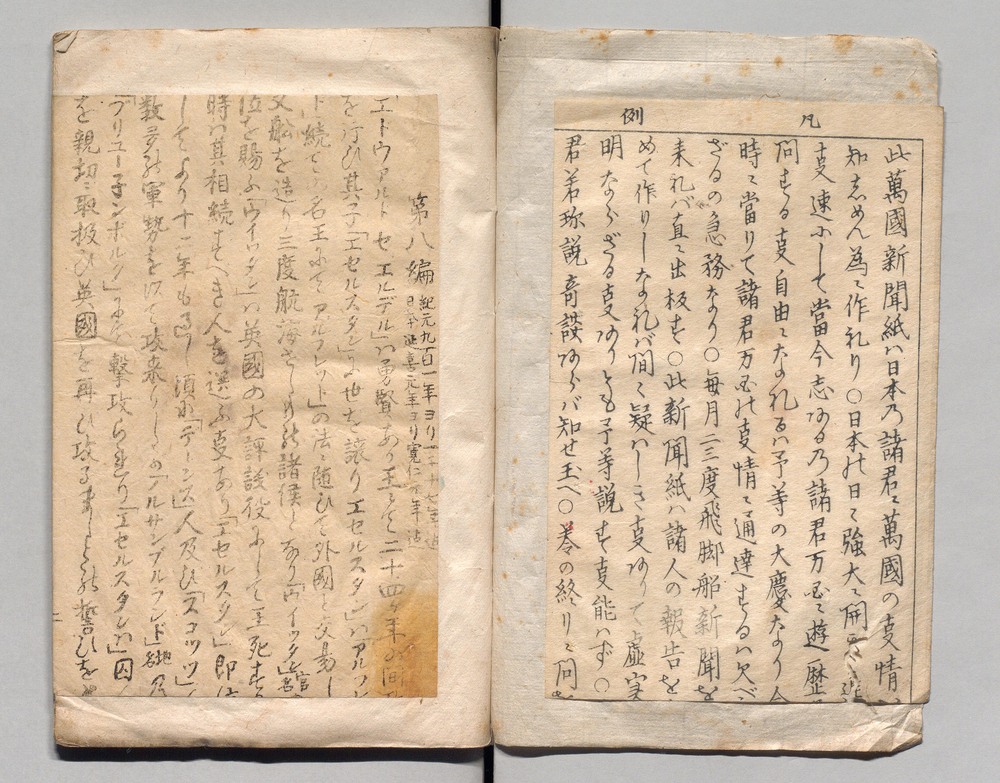 凡例
此萬國新聞紙ハ日本乃諸君ニ萬國の支情
知志めん為ニ作礼り〇日本の日ニ強大ニ開
支速ふして當今志ある乃諸君万国ニ遊歴
同する支自由になれるハ予等の大慶なり
時ニ當りて諸君万国の支情ニ通達するハ欠べ
ざるの急務なり〇毎月二三度飛脚船新聞を
来礼バ直ニ出板す〇此新聞紙ハ諸人の報告を
めて作りしな礼バ間ニ疑ハしき支ありて虚実
明ならざる支ありとも予等説す支能ハず〇
君若珎説奇談あらバ知せ玉へ〇巻の終りニ同
第八編 紀元九百一年ヨリ
日本延喜元年ヨリ寛仁
エトウアルト セ エルデル」ハ勇賢あり王たる二十四ヶ年の間
を行ひ其子「エセルスタン」に世を譲りエセルスタン」ハアルフレ
ト」続ての名王にてアルフレット」の法ニ随ひて外國と交易し
又船を造り三度航海さし諸侯となり「ウイッタ
位を賜ふ「ウイツタン」ハ英國の大評議役にして王死す
時ハ其相続すべき人を選ふ支あり「エセルスタン」即位
してより十二年も 須ね「デーンス」人及ひ「スコッツ」
数多の軍勢を以て攻来りしが アルサンブルランド」地名 乃
ブリユー子ンボルク」にて撃攻られり「エセルスタン」ハ囚
を親切ニ取扱ひ英國を再ひ攻るましとの誓ひを